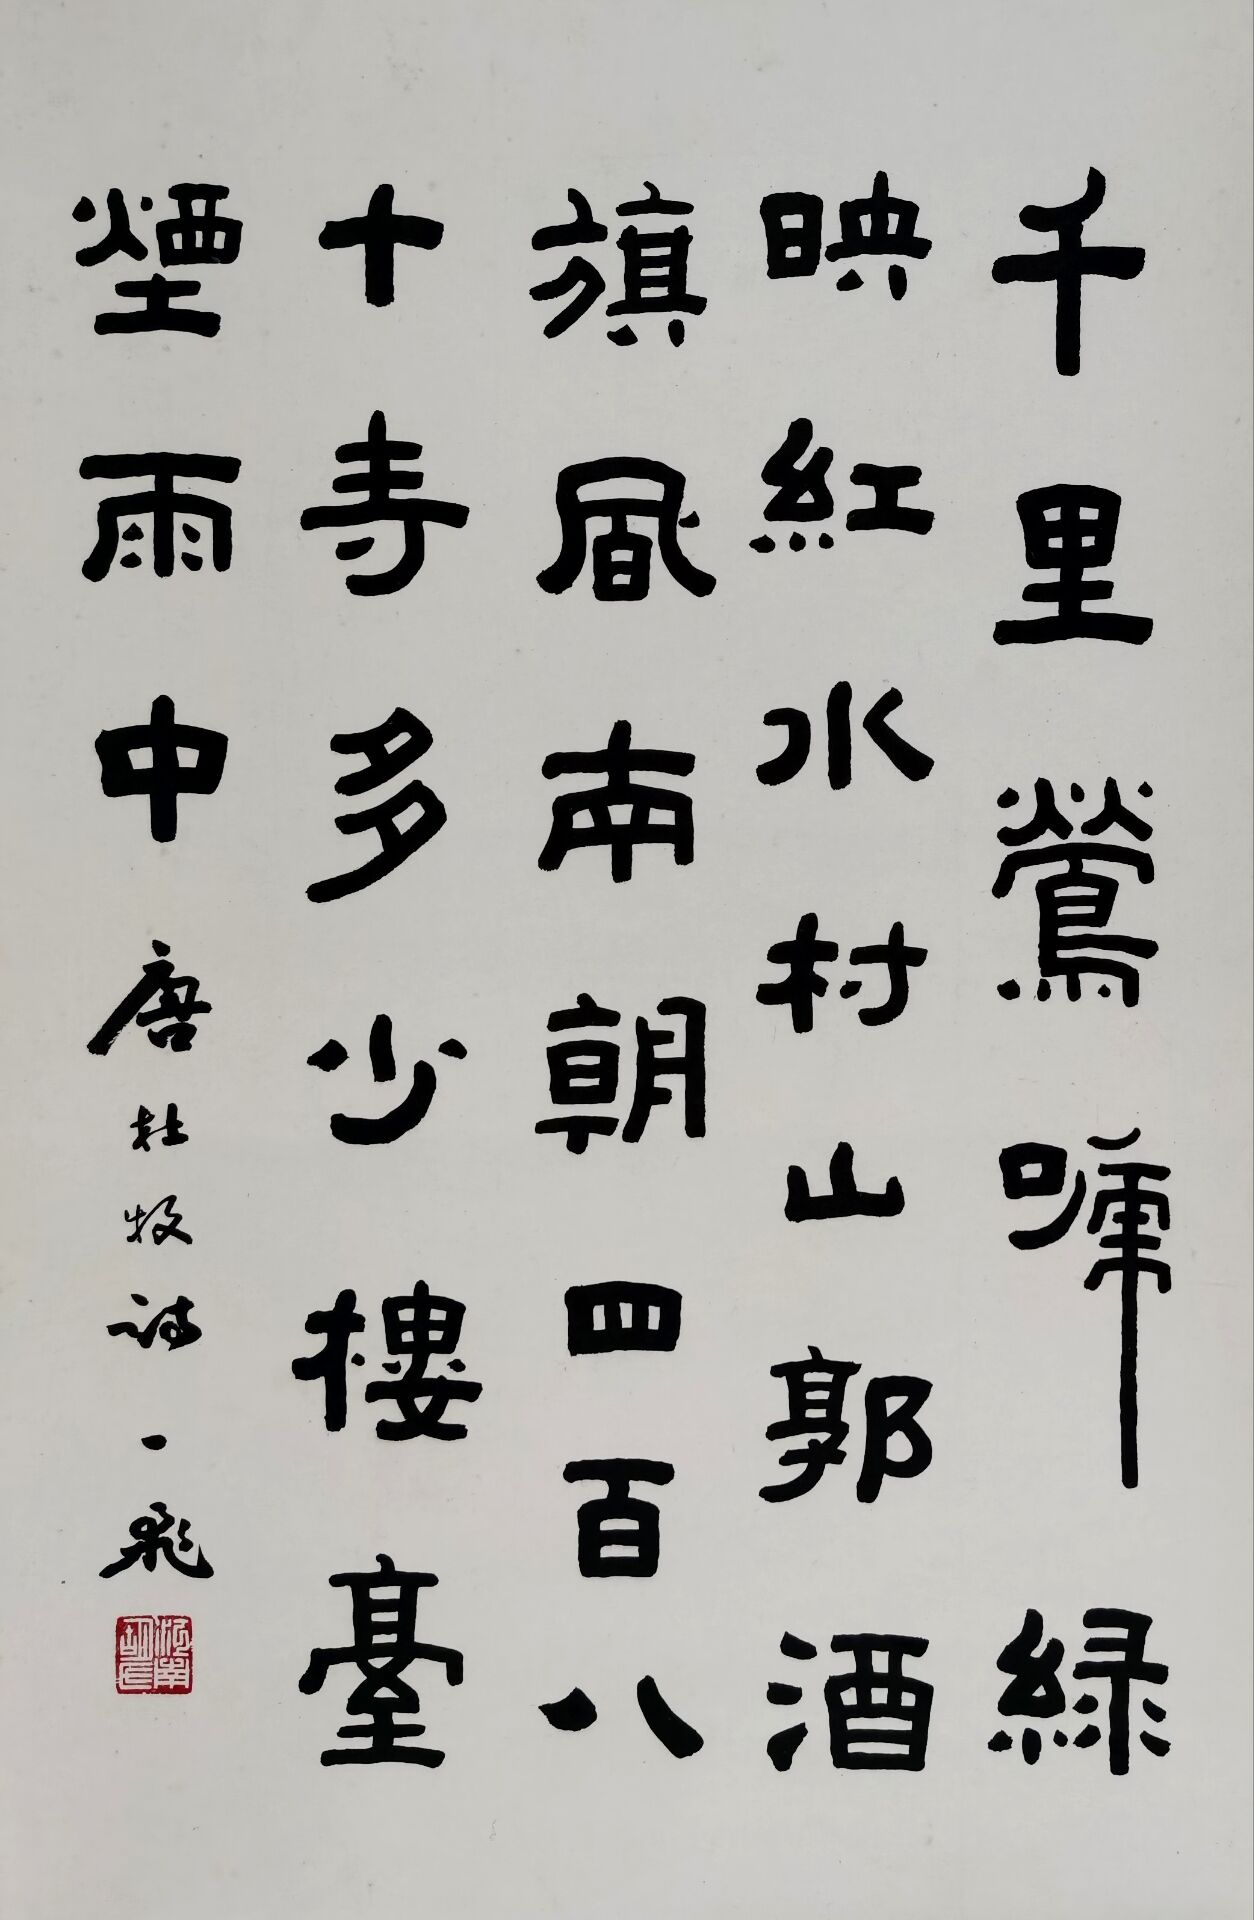 千里鶯啼緑
映紅水村山郭酒
旗風南朝四百八
十寺多少樓臺
煙雨中 唐杜牧詩 一飛